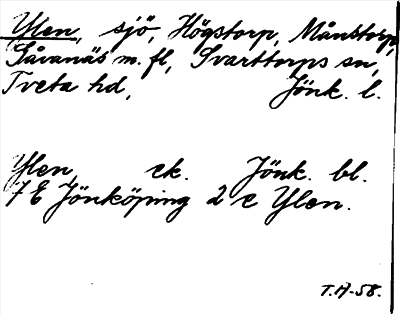 Ylen, sjö, Högstorp, Månstorp,
Såvanäs m. fl., Svarttorps sn,
Tveta hd, Jönk. l.
Ylen, ek. Jönk. bl.
7 E Jönköping 2 c Ylen.
T.H-58.